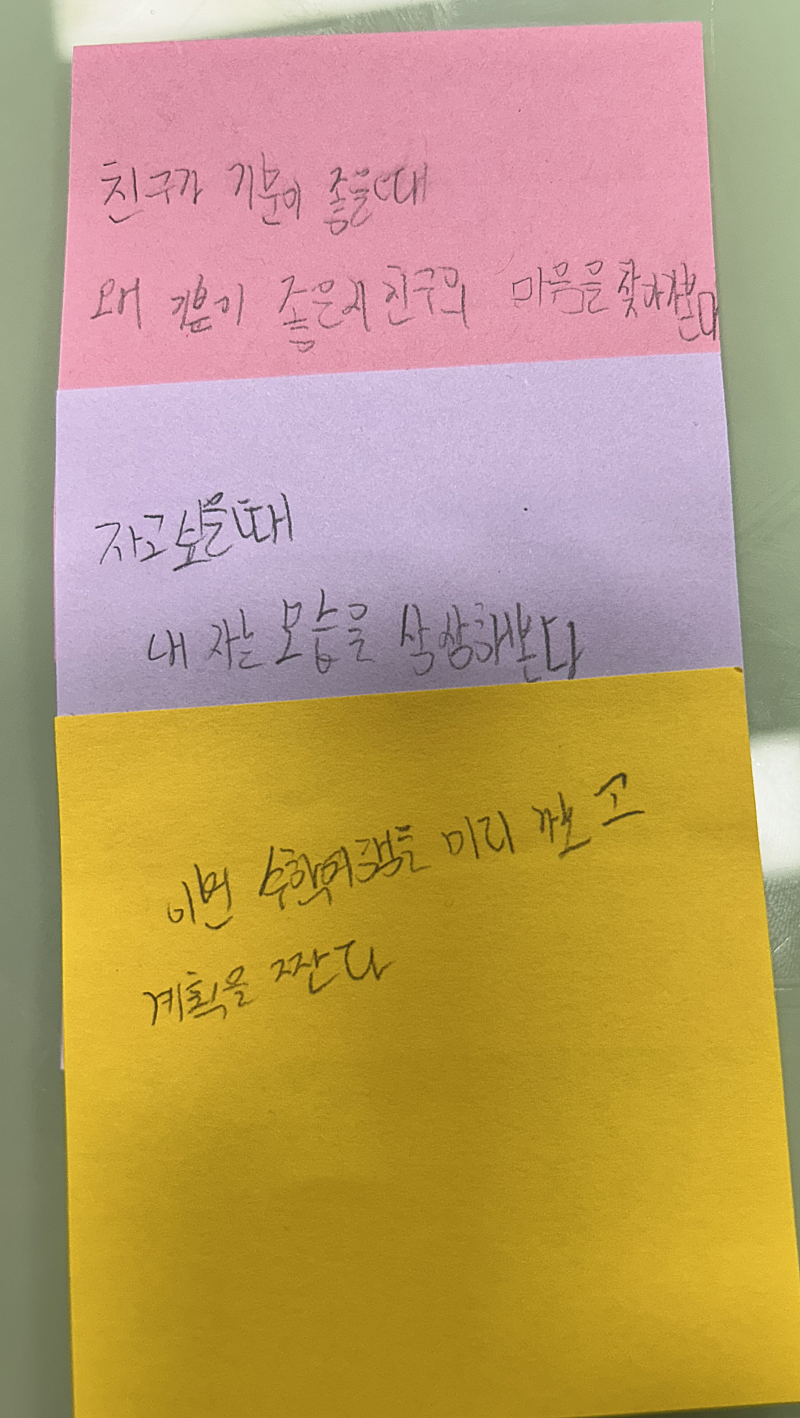 친구가 기분이 좋을때
왜 기분이 좋은지 친구의 마음을 찾아가본다
자고싶을때
내 자는 모습을 상상해본다
이번 수학여행을 미리 가보고
계획을 짠다